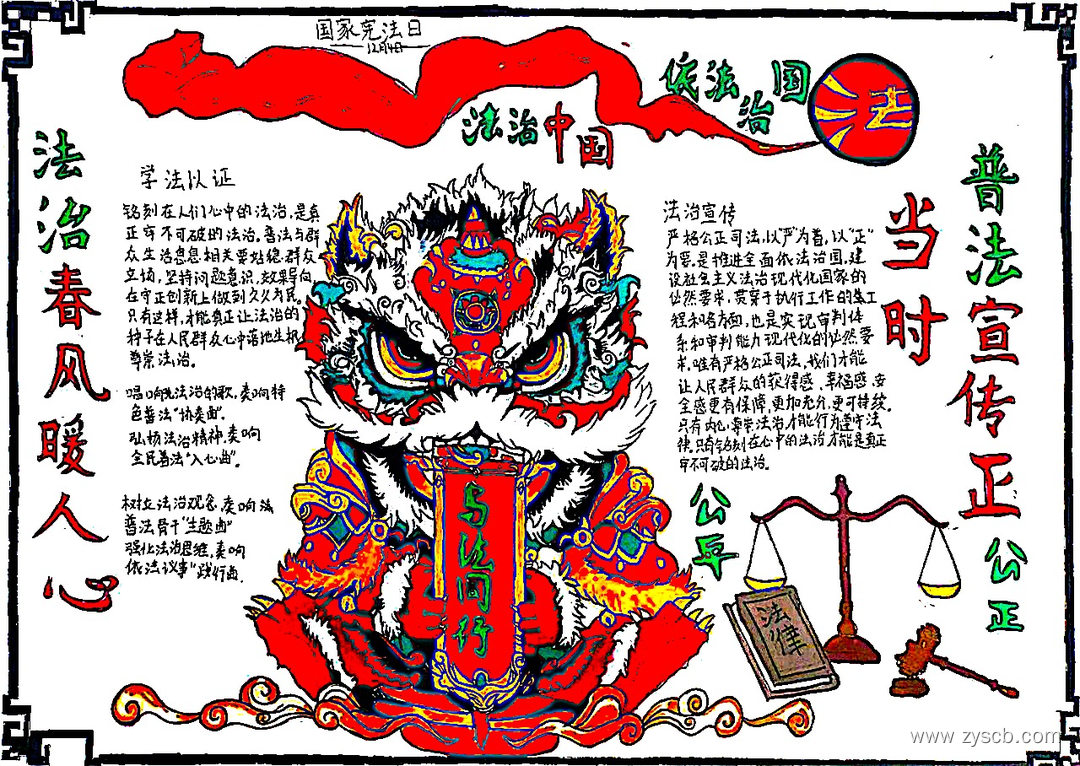 国家宪法日
12月4日
依法治国
法
法治中国
法治春风暖人心
普法宣传正
当时
学法以证
铭刻在人们心中的法治,是真
正牢不可破的法治。普法与群
众生活息息相关要站稳群众
立场,坚持问题意识、效果导向
在守正创新上做到久久为民
只有这样,才能真正让法治的
种子在人民群众心中落地生根
尊崇法治。
唱响法治的歌,奏响特
色普法“协奏曲”。
弘扬法治精神,奏响
全民普法“入心曲”。
树立法治观念,奏响法
普法骨干“主题曲”
强化法治思维,奏响
依法议事“践行曲”.
法治宣传
严格公正司法,以“严”为首,以“正”
为要,是推进全面依法治国,建
设社会主义法治现代化国家的
必然要求,贯穿于执行工作的
程和各方面,也是实现审判体
系和审判能力现代化的必然要
求。唯有严格公正司法,我们才能
让人民群众的获得感、幸福感、安
全感更有保障,更加充分,更可持续。
只有内心尊崇法治才能行为遵守法
律,只有铭刻在心中的法治才能是真正
牢不可破的法治。
与法同行
公平
公正
法律
www.zyscb.com